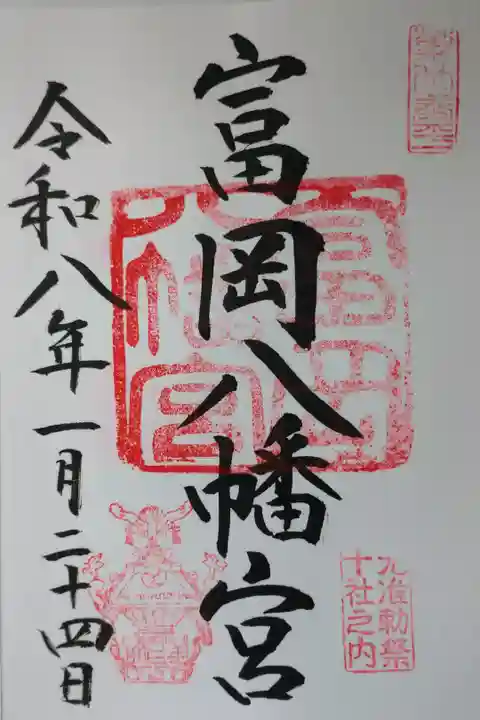 富岡八幡宮
令和八年一月二十四日
元准勅祭
十社之内